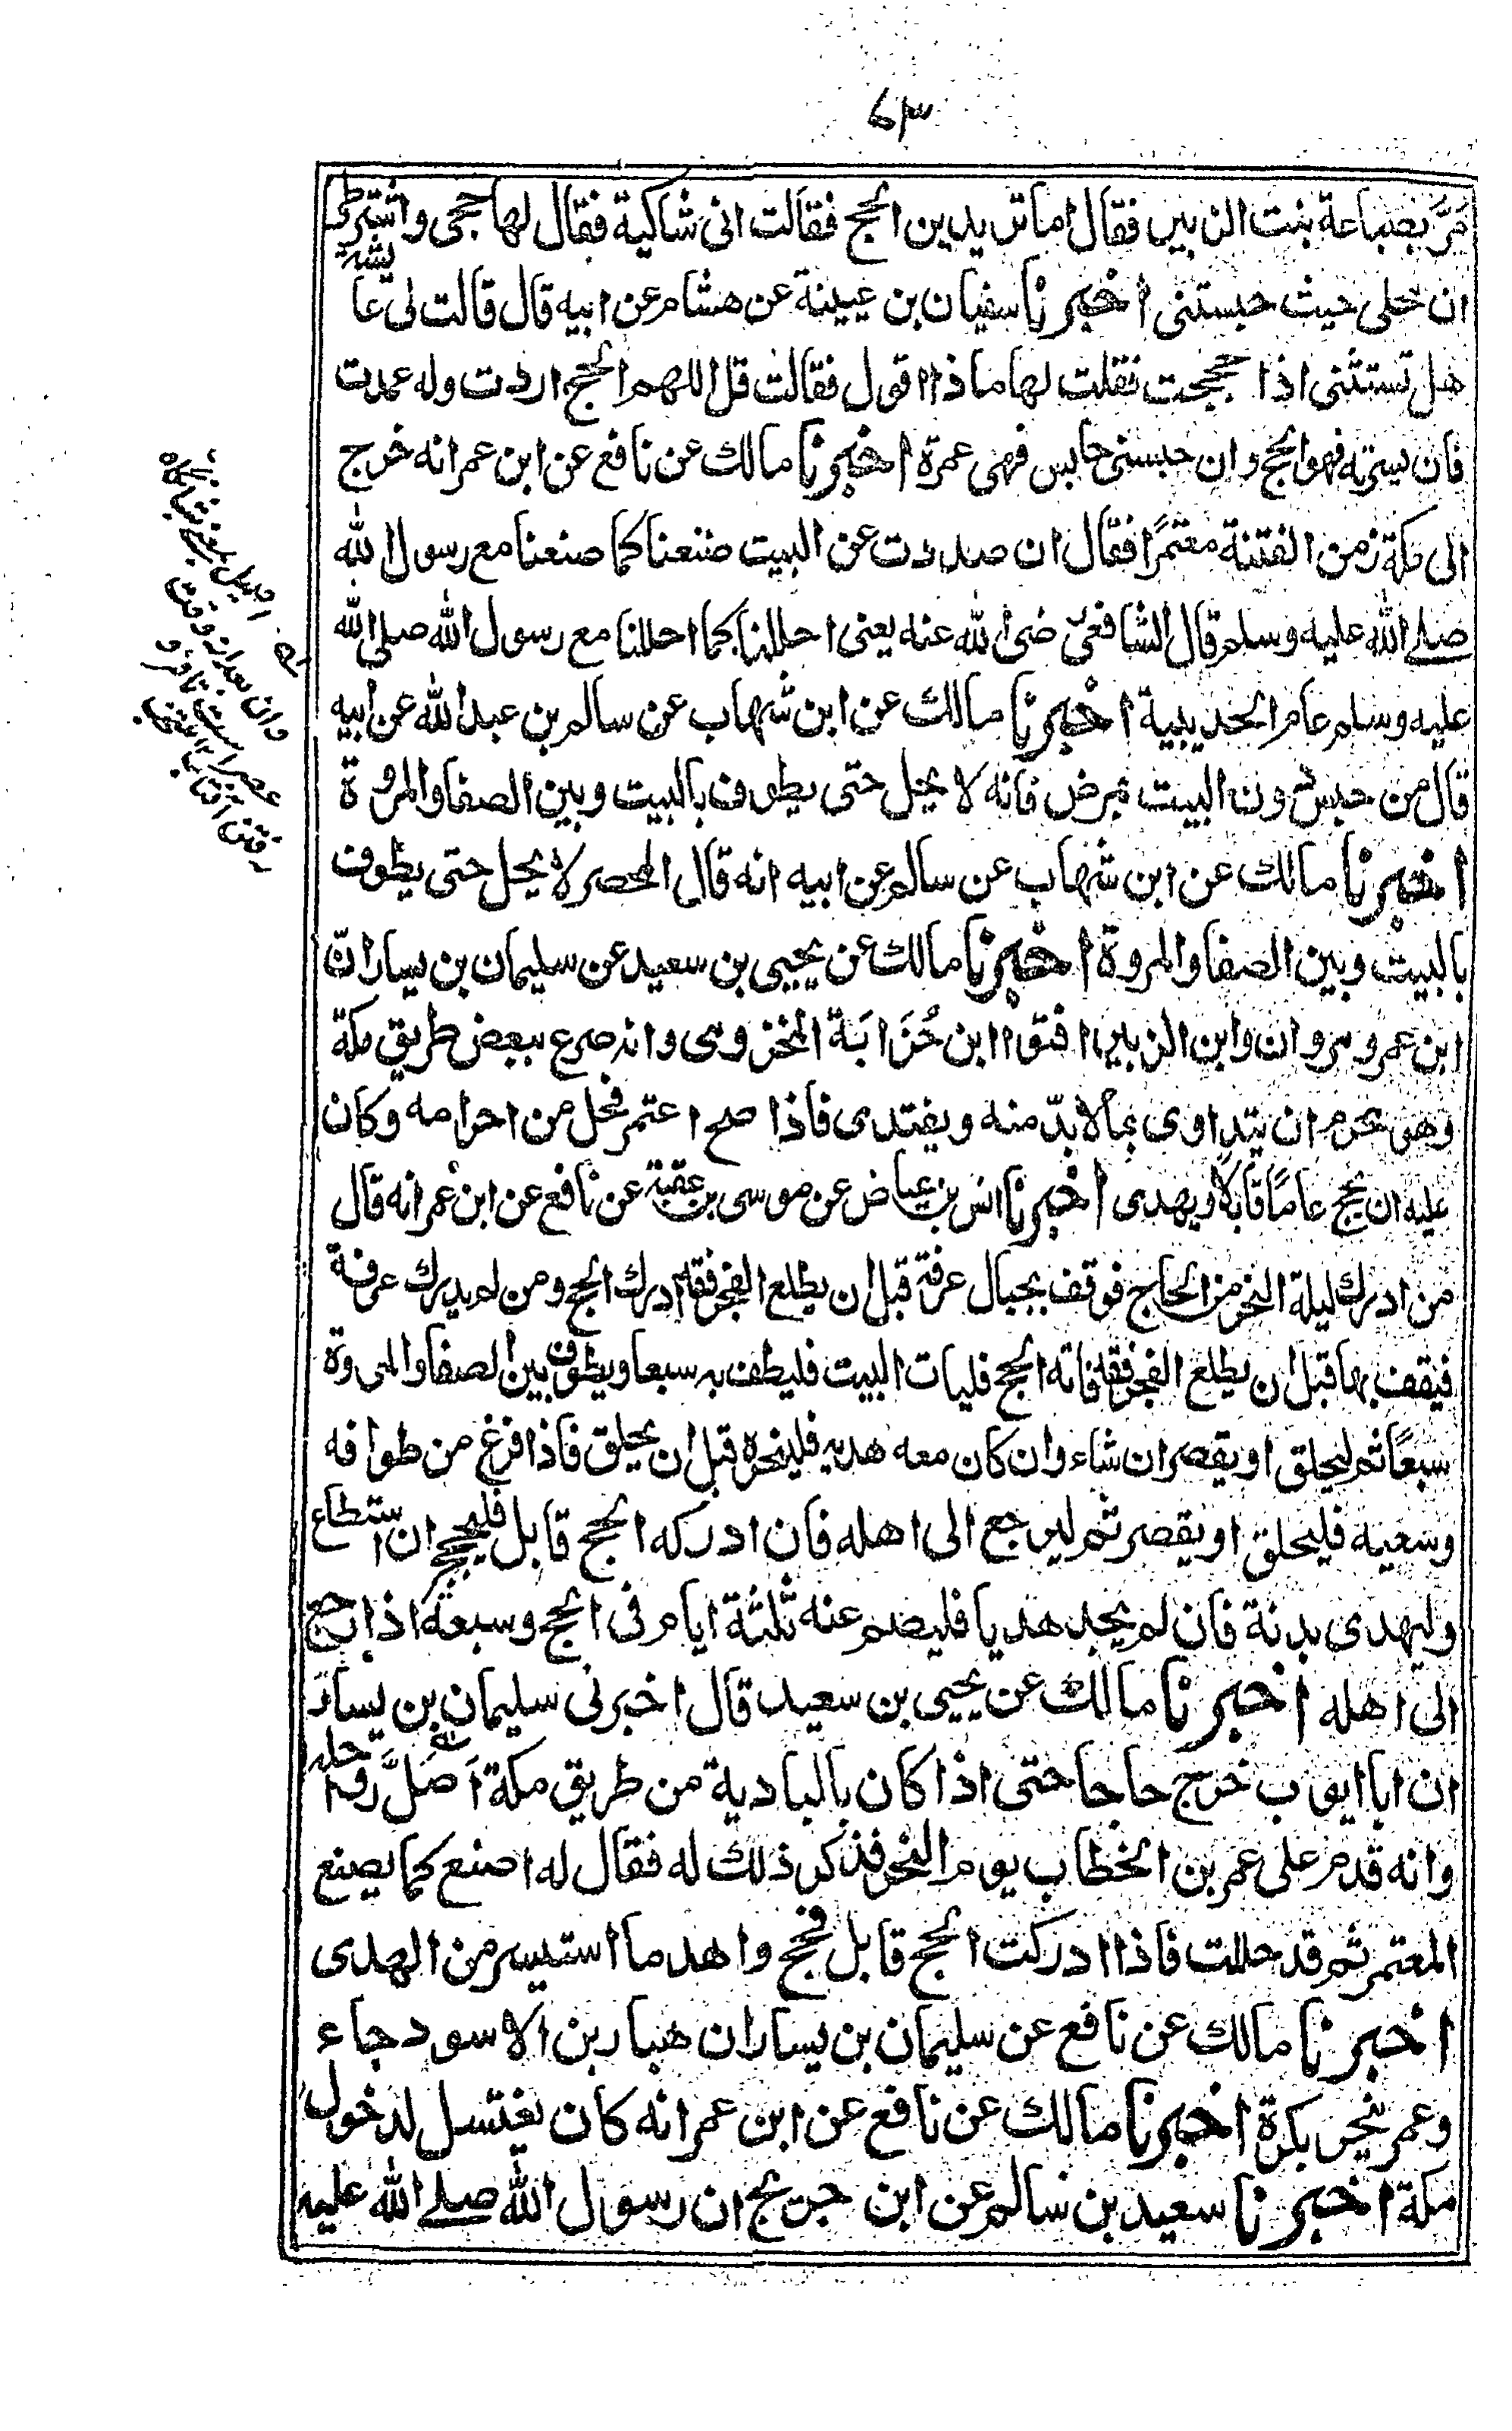 ٦٣
مَرَّ بضباعة بنت الزبير فقال اما تريدين الحج فقالت انى شاكية فقال لها حجى واشترطى
ان محلى حيث حبستنى اخبرنا سفيان بن عيينة عن هشام عن ابيه قال قالت لى عايشة
هل تستثنى اذا حججت فقلت لها ماذا اقول فقالت قل اللهم الحج اردت وله عمدت
فان يسرته فهو الحج وان حبسنى حابس فهى عمرة اخبرنا مالك عن نافع عن ابن عمر انه خرج
الى مكة زمن الفتنة معتمرًا فقال ان صددت عن البيت صنعنا كما صنعنا مع رسول الله
صلى الله عليه وسلم قال الشافعى رضى الله عنه يعنى احللنا كما احللنا مع رسول الله صلى الله
عليه وسلم عام الحديبية اخبرنا مالك عن ابن شهاب عن سالم بن عبد الله عن ابيه
قال من حبس دون البيت بمرض فانه لا يحل حتى يطوف بالبيت وبين الصفا والمروة
اخبرنا مالك عن ابن شهاب عن سالم عن ابيه انه قال المحصر لا يحل حتى يطوف
بالبيت وبين الصفا والمروة اخبرنا مالك عن يحيى بن سعيد عن سليمان بن يسار انّ
ابن عمر ومروان وابن الزبير افتوا ابن حُزَابَة المخزومى وانه صرع ببعض طريق مكة
وهو محرم ان يتداوى بما لا بدّ منه ويفتدى فاذا صح اعتمر فحل من احرامه وكان
عليه ان يحج عامًا قابلا ويهدى اخبرنا انس بن عياض عن موسى بن عقبة عن نافع عن ابن عمر انه قال
من ادرك ليلة النحر من الحاج فوقف بجبال عرفة قبل ان يطلع الفجر فقد ادرك الحج ومن لم يدرك عرفة
فيقف بها قبل ان يطلع الفجر فقد فاته الحج فليات البيت فليطف به سبعا ويطوف بين الصفا والمروة
سبعًا ثم ليحلق او يقصر ان شاء وان كان معه هديه فلينحره قبل ان يحلق فاذا فرغ من طوافه
وسعيه فليحلق او يقصر ثم ليرجع الى اهله فان ادركه الحج قابل فليحج ان استطاع
وليهدى بدنة فان لم يجد هديا فليصم عنه ثلثة ايام فى الحج وسبعة اذا رجع
الى اهله اخبرنا مالك عن يحيى بن سعيد قال اخبرنى سليمان بن يسار
ان ابا ايوب خرج حاجا حتى اذا كان بالبادية من طريق مكة اَضَلَّ رواحله
وانه قدم على عمر بن الخطاب يوم النحر فذكر ذلك له فقال له اصنع كما يصنع
المعتمر ثم قد حللت فاذا ادركت الحج قابل فحج واهد ما استيسر من الهدى
اخبرنا مالك عن نافع عن سليمان بن يسار ان هبار بن الاسود جاء
وعمر ينحر بكرة اخبرنا مالك عن نافع عن ابن عمر انه كان يغتسل لدخول
مكة اخبرنا سعيد بن سالم عن ابن جريج ان رسول الله صلى الله عليه